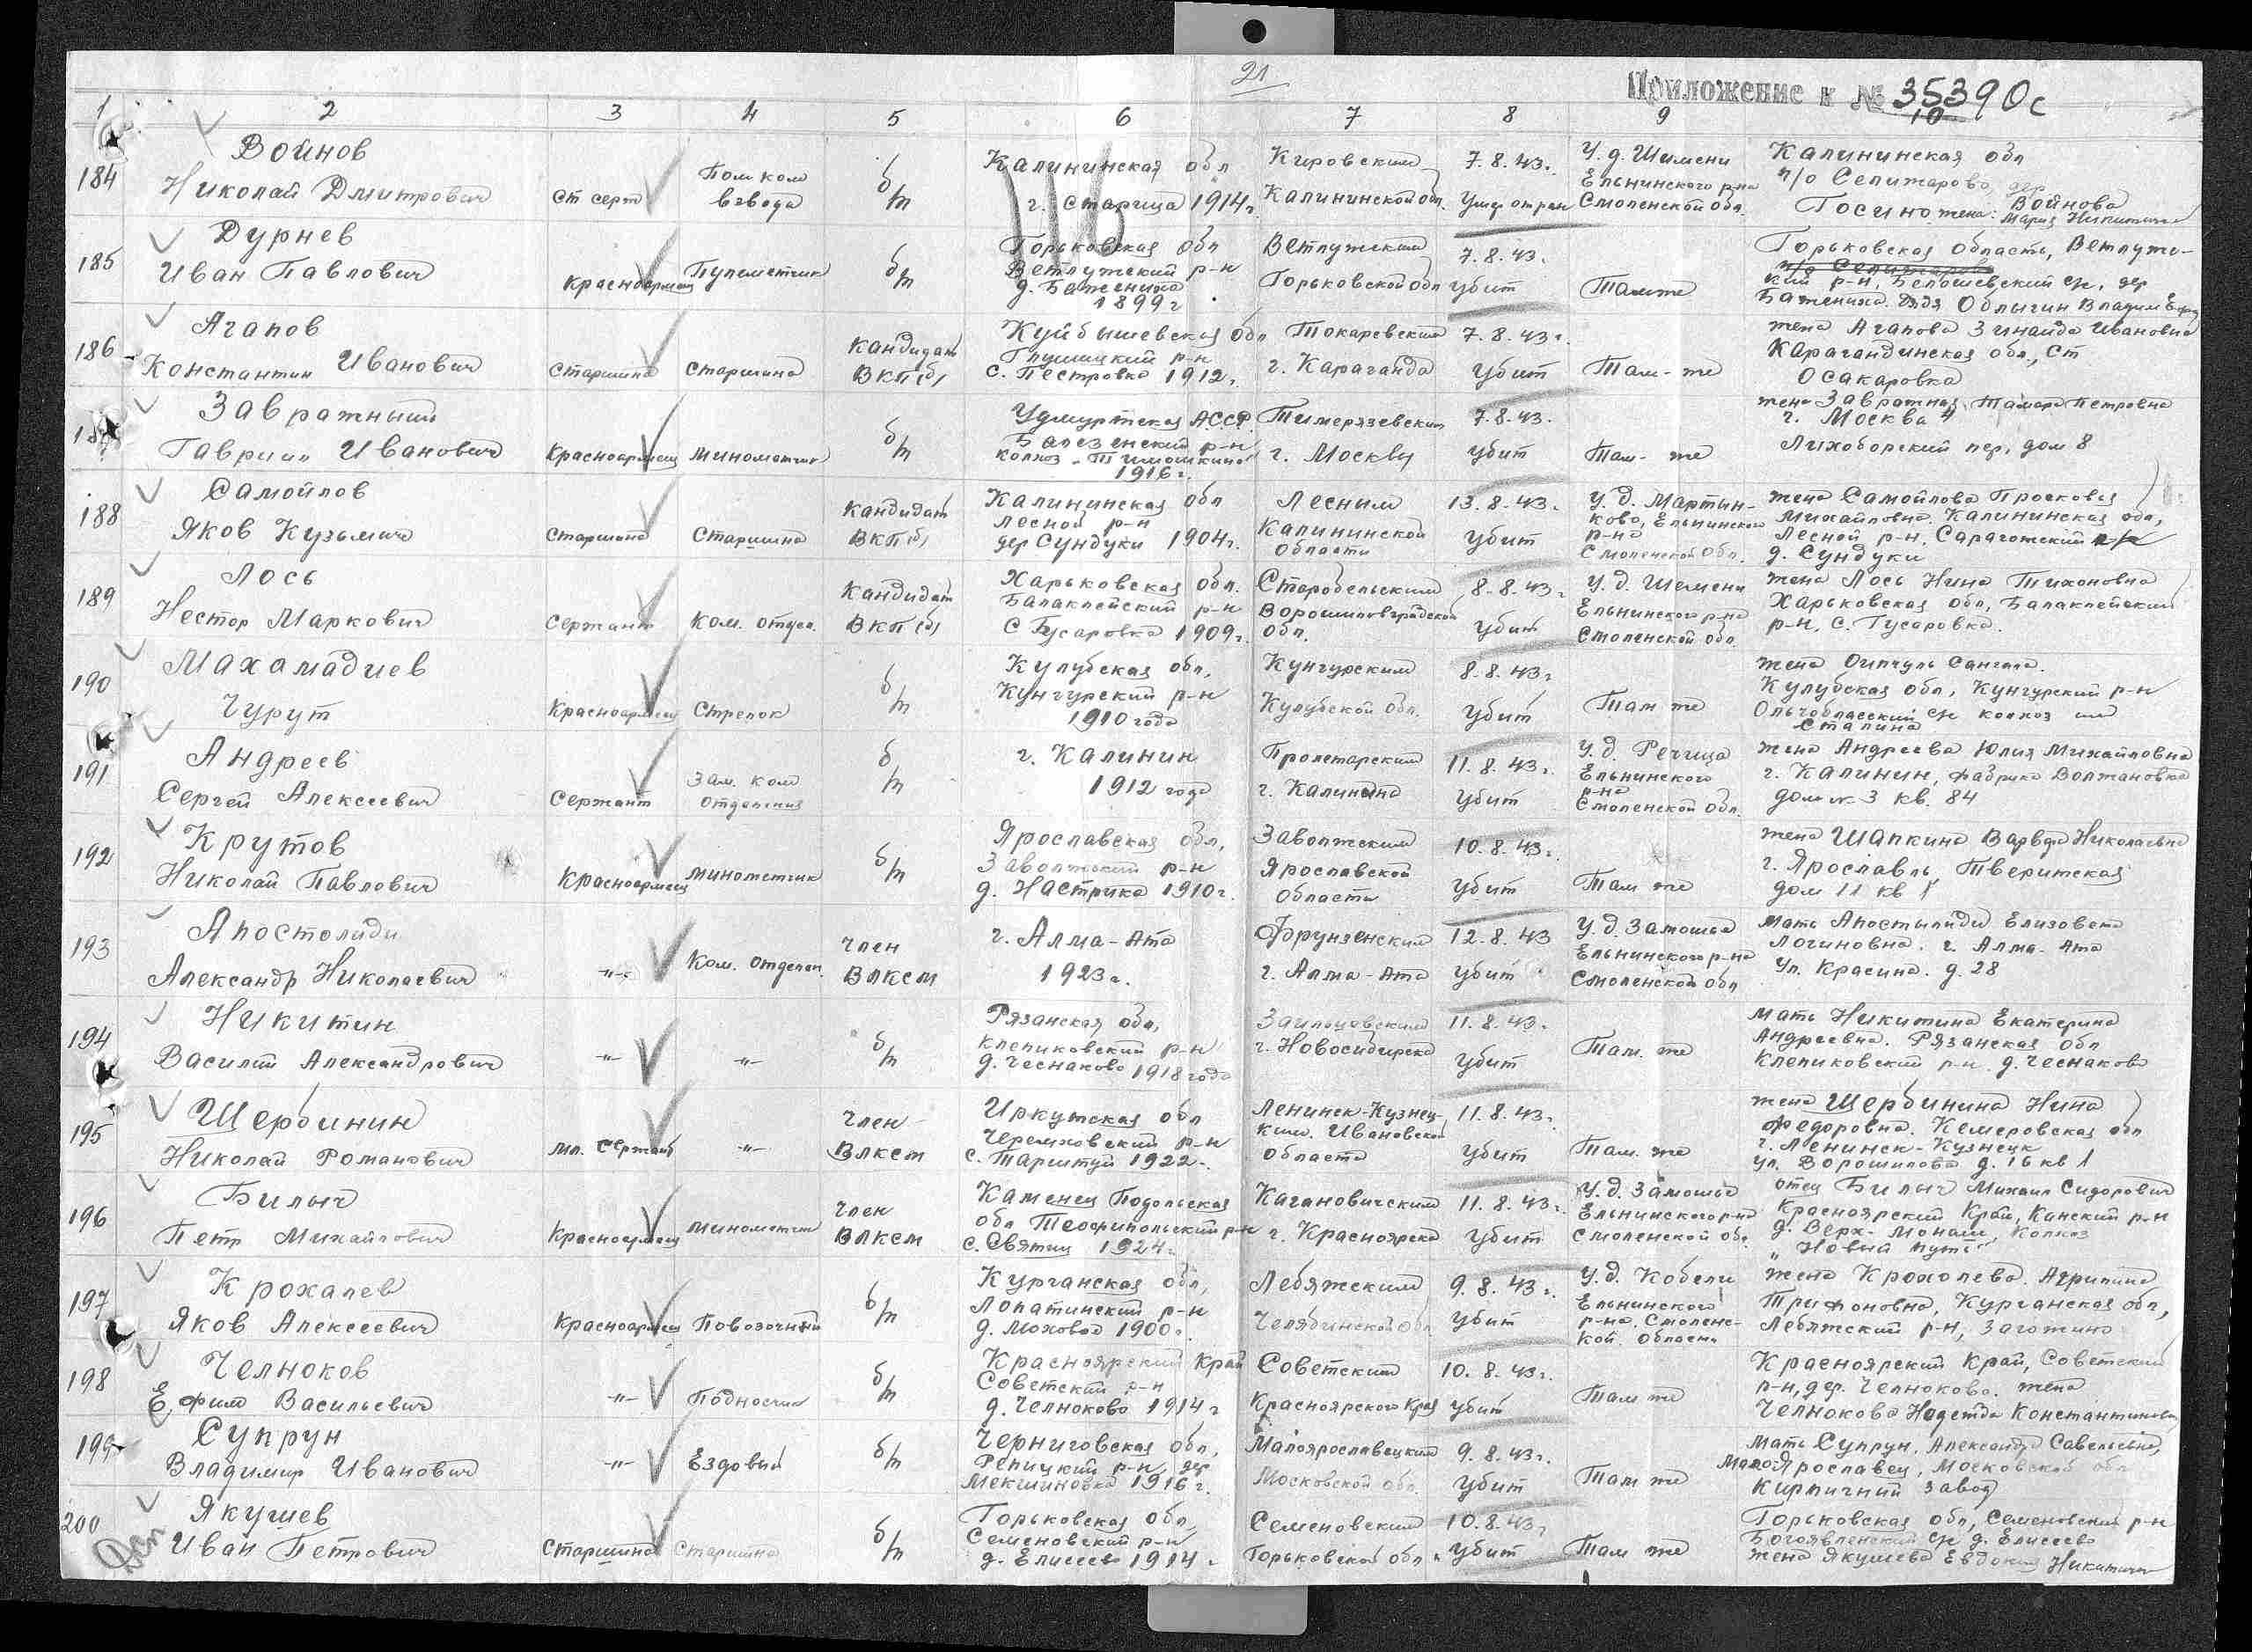 21
Приложение к № 35390с
10
1 2 3 4 5 6 7 8 9
116
184
Войнов
Николай Дмитрович
Ст серж
Пом ком
взвода
б/п
Калининская обл
г. Старица 1914г.
Кировским
Калининской обл.
7.8.43г.
Умер от ран
У д. Шимени
Ельнинского р-на
Смоленской обл.
Калининская обл
п/о Селижарово, дер
Госино жена: Войнова
Мария Никитична
185
Дурнев
Иван Павлович
Красноармеец
Пулеметчик
б/п
Горьковская обл
Ветлужский р-н
д. Бажениха
1899г
Ветлужским
Горьковской обл
7.8.43.
Убит
Там же
Горьковская область, Ветлужс-
п/о Селижарово
кий р-н, Белошевский с/с, дер
Бажениха. Дядя Облыгин Владим
186
Агапов
Константин Иванович
Старшина
Старшина
Кандидат
ВКП(б)
Куйбышевская обл
Глушицкий р-н
с. Пестровка 1912г.
Токаревским
г. Караганда
7.8.43г.
Убит
Там-же
жена Агапова Зинаида Ивановна
Карагандинская обл., ст
Осакаровка
187
Завражный
Гавриил Иванович
Красноармеец
Минометчик
б/п
Удмуртская АССР.
Балезенский р-н
колхоз "Тимошкино"
1916г.
Тимерязевским
г. Москвы
7.8.43.
Убит
Там-же
жена Завражная Тамара Петровна
г. Москва
Лихоборский пер, дом 8
188
Самойлов
Яков Кузьмич
Старшина
Старшина
Кандидат
ВКП(б)
Калининская обл
Лесной р-н
дер Сундуки 1904г.
Лесным
Калининской
области
13.8.43.
Убит
У. д. Мартын-
ково, Ельнинского
р-на
Смоленской обл.
жена Самойлова Просковья
Михайловна. Калининская обл,
Лесной р-н, Сарагожский
д. Сундуки
189
Лось
Нестор Маркович
Сержант
Ком. отдел.
Кандидат
ВКП(б)
Харьковская обл.
Балаклейский р-н
С Гусаровка 1909г.
Старобельским
Ворошиловградской
обл.
8.8.43г
Убит
У. д. Шемени
Ельнинского р-на
Смоленской обл.
жена Лось Нина Тихоновна
Харьковская обл, Балаклейский
р-н, с. Гусаровка.
190
Махамадиев
Чурут
Красноармеец
Стрелок
б/п
Кулубская обл.
Кунгурский р-н
1910 года
Кунгурским
Кулубской обл.
8.8.43г
Убит
Там же
жена Оипчуль Сангала.
Кулубская обл, Кунгурский р-н
с/с колхоз им
Сталина
191
Андреев
Сергей Алексеевич
Сержант
Зам. ком
отделения
б/п
г. Калинин
1912 года
Пролетарским
г. Калинина
11.8.43г.
Убит
У. д. Речица
Ельнинского
р-на
Смоленской обл.
жена Андреева Юлия Михайловна
г. Калинин, фабрика Волжановка
дом № 3 кв. 84
192
Крутов
Николай Павлович
Красноармеец
минометчик
б/п
Ярославская обл,
Заволжский р-н
д. Настрика 1910г.
Заволжским
Ярославской
области
10.8.43г.
Убит
Там же
жена Шапкина Варвара Николаевна
г. Ярославль, Тверитская
дом 11 кв 1
193
Апостолиди
Александр Николаевич
-"-
Ком. отделен.
член
ВЛКСМ
г. Алма-Ата
1923г.
Фрунзенским
г. Алма-Ата
12.8.43
Убит
У. д. Замошье
Ельнинского р-на
Смоленской обл
мать Апостылиди Елизовета
Логиновна. г. Алма-Ата
Ул. Красина. д. 28
194
Никитин
Василий Александрович
-"-
-"-
б/п
Рязанская обл,
Клепиковский р-н
д. Чеснаково 1918 года
Заильцовским
г. Новосибирска
11.8.43.
Убит
Там. же
мать Никитина Екатерина
Андреевна. Рязанская обл
Клепиковский р-н. д. Чеснаково
195
Щербинин
Николай Романович
мл. Сержант
-"-
Член
ВЛКСМ
Иркутская обл
Черемховский р-н
с. Тарштуй 1922г.
Ленинск-Кузнец-
ким. Ивановской
области
11.8.43г.
Убит
Там. же
жена Щербинина Нина
Федоровна. Кемеровская обл
г. Ленинск-Кузнецк
ул. Ворошилова д. 16 кв 1
196
Билыч
Петр Михайлович
Красноармеец
минометчик
Член
ВЛКСМ
Каменец Подольская
обл Теофипольский р-н
с. Святец 1924г.
Кагановичским
г. Красноярска
11.8.43г.
Убит
У. д. Замошье
Ельнинского р-на
Смоленской обл.
отец Билыч Михаил Сидорович
Красноярский Край, Канский р-н
д. Верх-Монаш, Колхоз
"Новый путь"
197
Крохалев
Яков Алексеевич
Красноармеец
Повозочный
б/п
Курганская обл,
Лопатинский р-н
д. Моховая 1900г.
Лебяжским
Челябинской обл
9.8.43г.
Убит
У. д. Кобели
Ельнинского
р-на, Смоленс-
кой области
жена Крохолева. Агрипина
Трифоновна, Курганская обл,
Лебяжский р-н, Заготино
198
Челноков
Ефим Васильевич
-"-
Подносчик
б/п
Красноярский Край
Советский р-н
д. Челноково 1914г
Советским
Красноярского Края
10.8.43г.
Убит
Там же
Красноярский Край, Советский
р-н, дер. Челноково. жена
Челнокова Надежда Константиновна
199
Супрун
Владимир Иванович
-"-
Ездовый
б/п
Черниговская обл,
Репицкий р-н, дер
Мекшиновка 1916г.
Малоярославецким
Московской обл.
9.8.43г.
Убит
Там же
мать Супрун, Александра Савельевна,
МалоЯрославец, Московской обл
Кирпичний завод
200
Якушев
Иван Петрович
Старшина
Старшина
б/п
Горьковская обл,
Семеновский р-н
д. Елисеево 1914г
Семеновским
Горьковской обл
10.8.43г
Убит
Там же
Горьковская обл, Семеновский р-н
Богоявленский с/с д. Елисеево
жена Якушева Евдокия Никитична